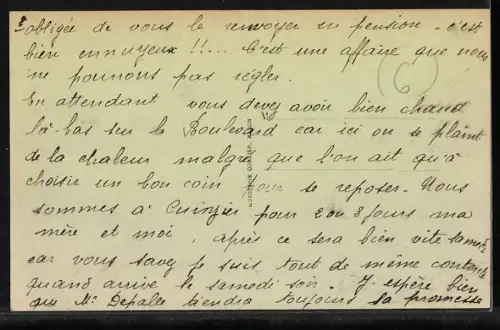 obligée de vous le renvoyer en pension - c'est
bien ennuyeux !!... C'est une affaire que nous
ne pouvons pas régler.
En attendant vous devez avoir bien chaud
là-bas sur le Boulevard car ici on se plaint
de la chaleur malgré que l'on ait qu'à
choisir un bon coin pour se reposer. Nous
sommes à pour 2 ou 3 jours ma
mère et moi, après ce sera bien vite samedi
car vous savez je suis tout de même contente
quand arrive le samedi soir. J'espère bien
que Mr tiendra toujours sa promesse
6